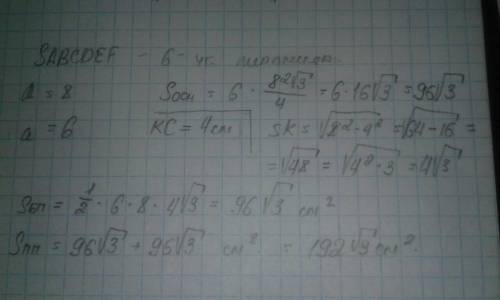 SABCDEF - 6-уг. пирамида.
a = 8 Sосн = 6 · 8²√3/4 = 6·16√3 = 96√3
a = 6 KC = 4см SK = √8²-4² = √64-16 =
= √48 = √4²·3 = 4√3
Sбп = 1/2 · 6 · 8 · 4√3 = 96√3 см²
Sпп = 96√3 + 96√3 см² = 192√3 см².